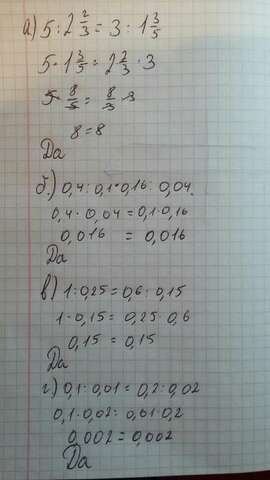 а) 5 : 2 2/3 = 3 : 1 3/5
5 · 1 3/5 = 2 2/3 · 3
5 · 8/5 = 8/3 · 3
8 = 8
Да
б) 0,4 : 0,1 · 0,16 : 0,04.
0,4 · 0,04 = 0,1 · 0,16
0,016 = 0,016
Да
в) 1 : 0,25 = 0,6 : 0,15
1 · 0,15 = 0,25 · 0,6
0,15 = 0,15
Да
г) 0,1 : 0,01 = 0,2 : 0,02
0,1 · 0,02 = 0,01 · 0,2
0,002 = 0,002
Да